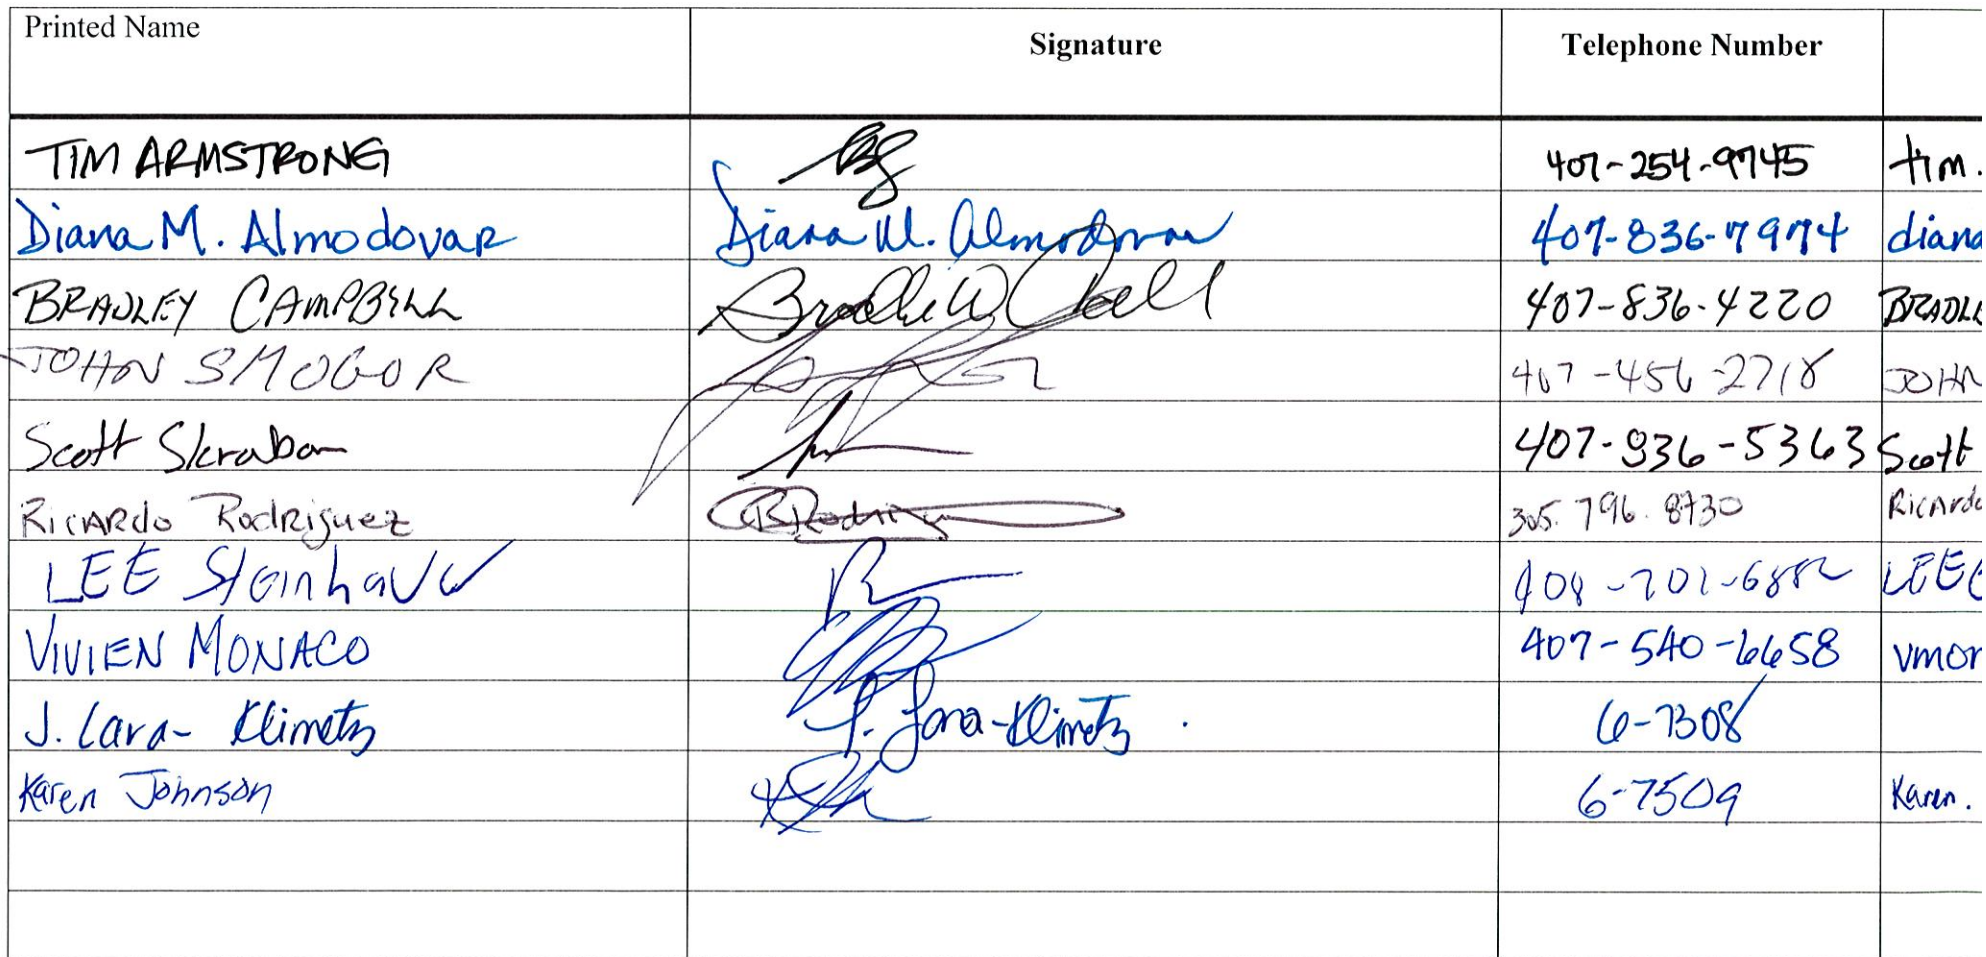 Printed Name Signature Telephone Number
TIM ARMSTRONG 407-254-9745 tim.
Diana M. Almodovar Diana M. Almodovar 407-836-7974 diana
BRADLEY CAMPBELL 407-836-4220 BRADLE
JOHN SMOGOR 407-456-2718 JOHN
Scott Skraban 407-936-5363 Scott
RicARdo RodRiguez 305.796.8730 Ricardo
LEE
VIVIEN MONACO 407-540-6658 vmon
J. Lara-Klimetz J. Lara-Klimetz 6-7308
Karen Johnson 6-7509 Karen.